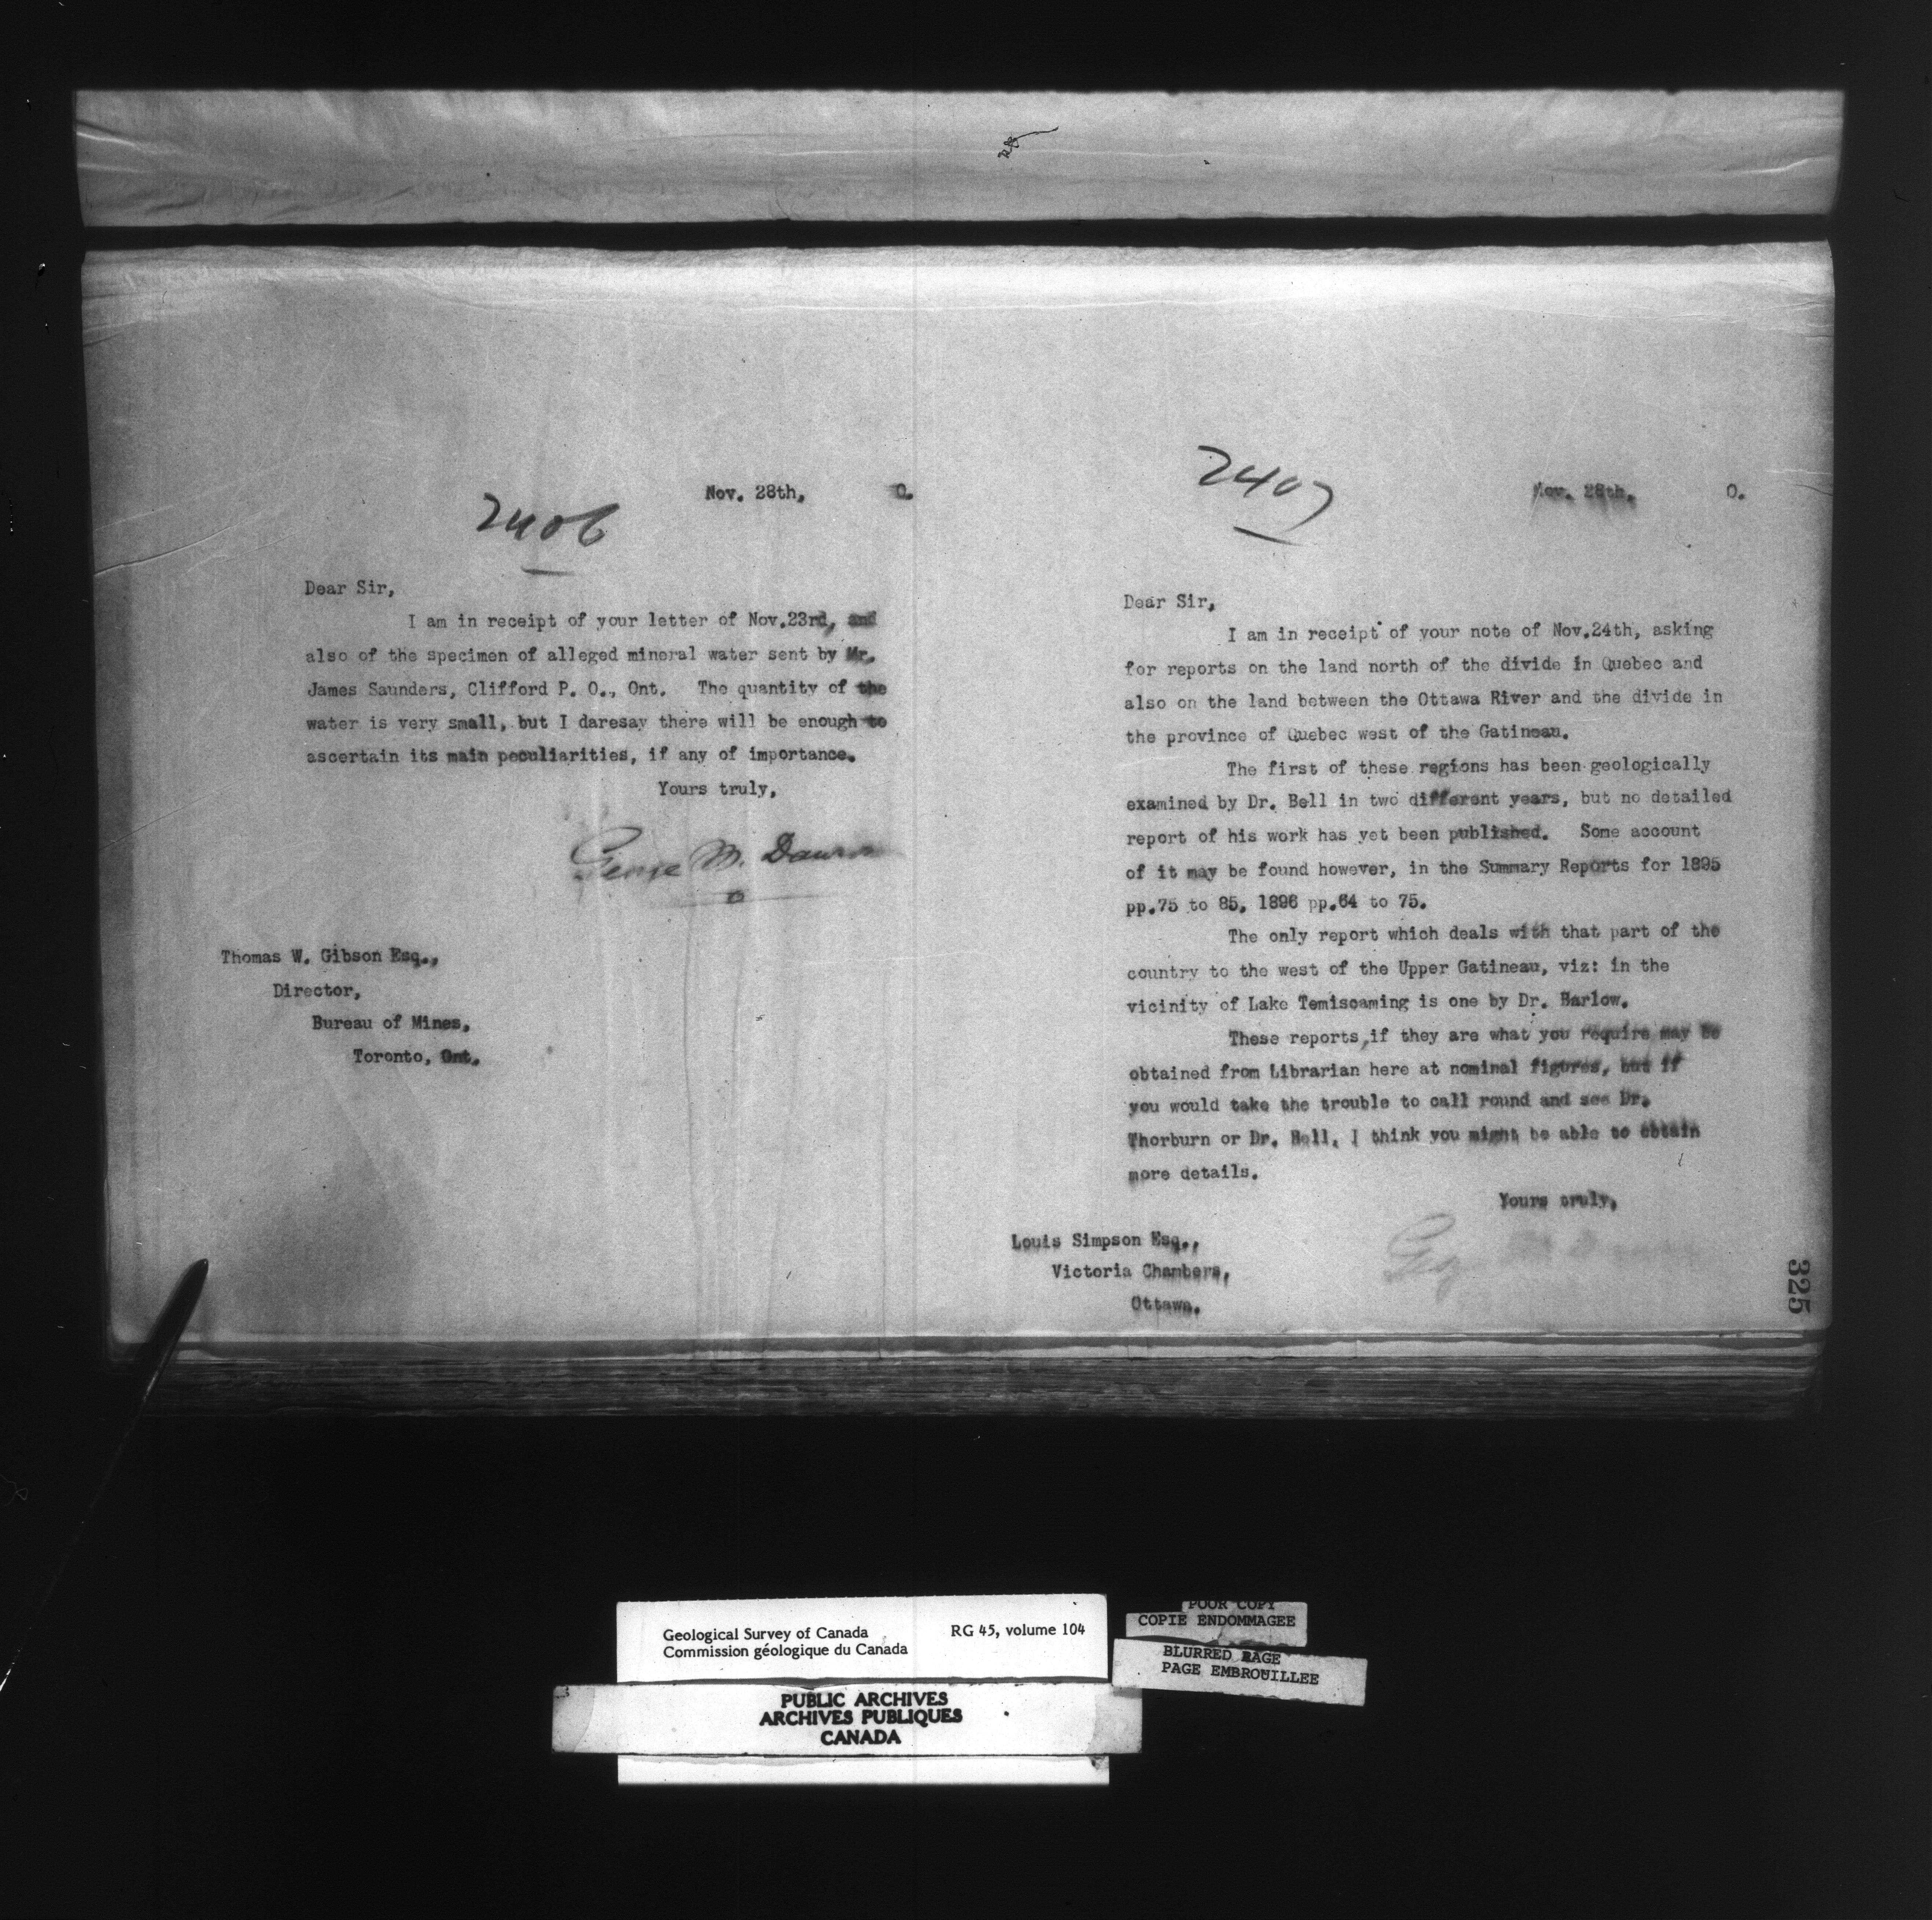 Nov. 28th, 0.
2406
Dear Sir,
I am in receipt of your letter of Nov.23rd, and
also of the specimen of alleged mineral water sent by Mr.
James Saunders, Clifford P. O., Ont. The quantity of the
water is very small, but I daresay there will be enough to
ascertain its main peculiarities, if any of importance.
Yours truly,
George M. Dawson
Thomas W. Gibson Esq.,
Director,
Bureau of Mines,
Toronto, Ont.
2407
Nov. 28th, 0.
Dear Sir,
I am in receipt of your note of Nov.24th, asking
for reports on the land north of the divide in Quebec and
also on the land between the Ottawa River and the divide in
the province of Quebec west of the Gatineau.
The first of these regions has been geologically
examined by Dr. Bell in two different years, but no detailed
report of his work has yet been published. Some account
of it may be found however, in the Summary Reports for 1895
pp.75 to 85, 1896 pp.64 to 75.
The only report which deals with that part of the
country to the west of the Upper Gatineau, viz: in the
vicinity of Lake Temiscaming is one by Dr. Barlow.
These reports, if they are what you require may be
obtained from Librarian here at nominal figures, but if
you would take the trouble to call round and see Dr.
Thorburn or Dr. Bell, I think you might be able to obtain
more details.
Yours truly,
Louis Simpson Esq.,
Victoria Chambers,
Ottawa.
325
Geological Survey of Canada RG 45, volume 104
Commission géologique du Canada
PUBLIC ARCHIVES
ARCHIVES PUBLIQUES
CANADA
POOR COPY
COPIE ENDOMMAGEE
BLURRED PAGE
PAGE EMBROUILLEE